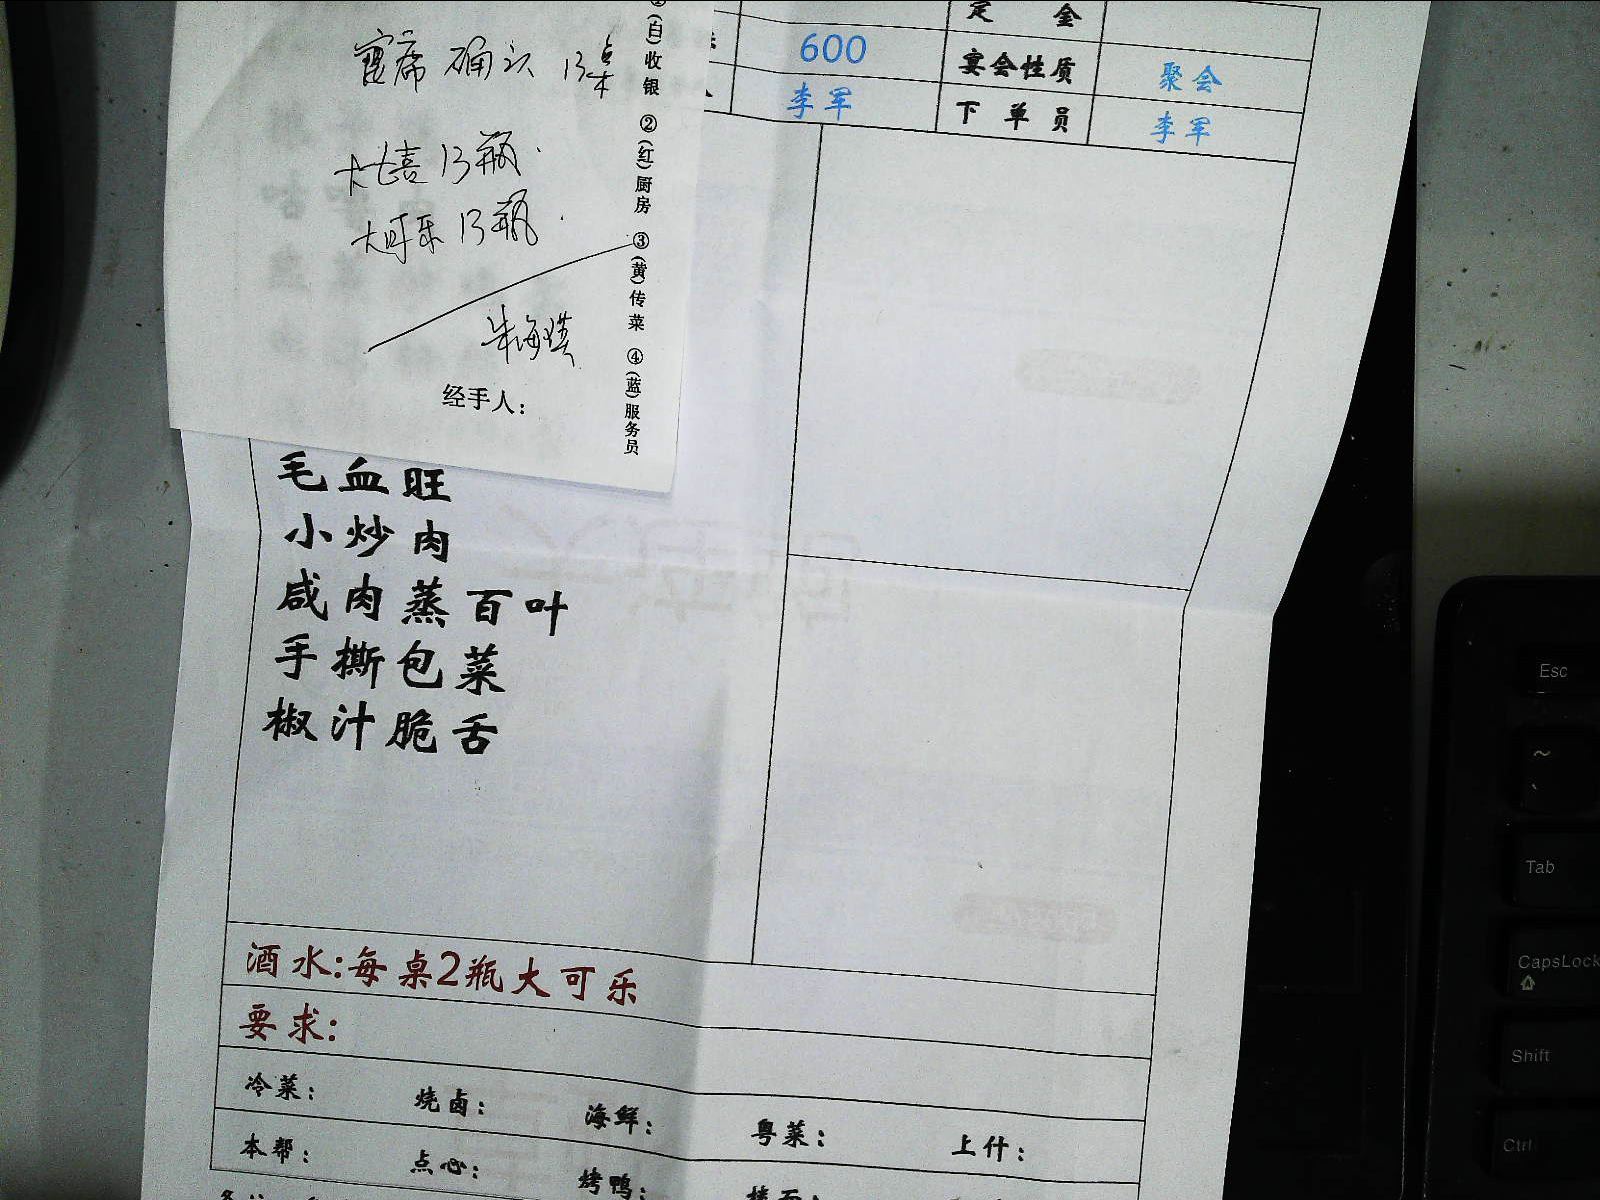 宴席确认 13桌
大七喜 13瓶.
大可乐 13瓶.
朱海瑛
经手人:
(白)收银 ②(红)厨房 ③(黄)传菜 ④(蓝)服务员
定 金
600 宴会性质 聚会
李军 下单员 李军
毛血旺
小炒肉
咸肉蒸百叶
手撕包菜
椒汁脆舌
酒水:每桌2瓶大可乐
要求:
冷菜: 烧卤: 海鲜: 粤菜: 上什:
本帮: 点心: 烤鸭:
Esc
~
Tab
CapsLock
Shift
Ctrl